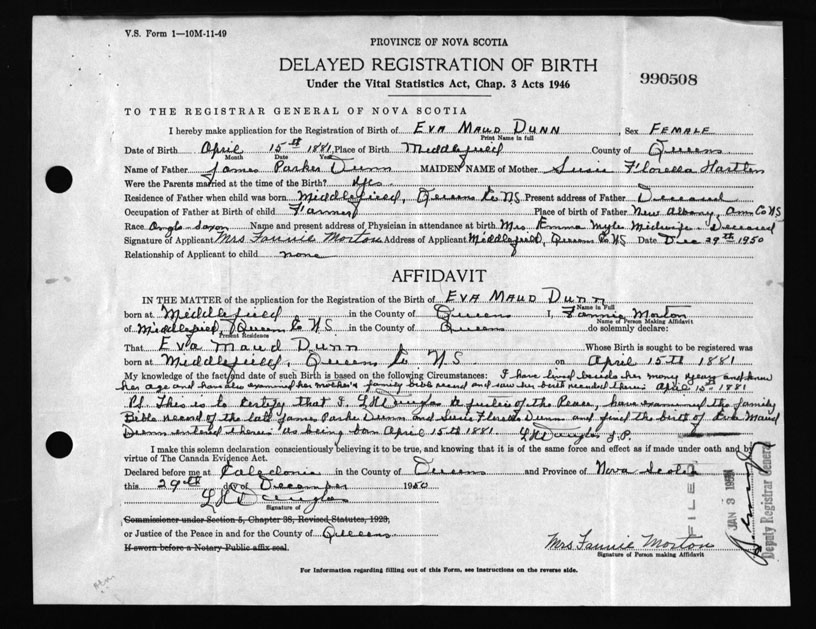 V.S. Form 1—10M-11-49
PROVINCE OF NOVA SCOTIA
DELAYED REGISTRATION OF BIRTH
990508
Under the Vital Statistics Act, Chap. 3 Acts 1946
TO THE REGISTRAR GENERAL OF NOVA SCOTIA
I hereby make application for the Registration of Birth of EVA MAUD DUNN, Sex FEMALE
Print Name in full
Date of Birth April 15th 1881, Place of Birth Middlefield County of Queens
Month Date Year
Name of Father James Parker Dunn MAIDEN NAME of Mother Susie Florella Hartlen
Were the Parents married at the time of Birth? Yes
Residence of Father when child was born Middlefield, Queens Co NS Present address of Father Deceased
Occupation of Father at Birth of child Farmer Place of birth of Father New Albany, Ann Co NS
Race Anglo-Saxon Name and present address of Physician in attendance at birth Mrs. Emma Myler Midwife - Deceased
Signature of Applicant Mrs Fannie Morton Address of Applicant Middlefield, Queens Co NS Date Dec 29th 1950
Relationship of Applicant to child none
AFFIDAVIT
IN THE MATTER of the application for the Registration of the Birth of EVA MAUD DUNN
Name in Full
born at Middlefield in the County of Queens I, Fannie Morton
Name of Person Making Affidavit
of Middlefield, Queens Co NS in the County of Queens do solemnly declare:
Present Residence
That Eva Maud Dunn Whose Birth is sought to be registered was
born at Middlefield, Queens Co. NS on April 15th 1881
My knowledge of the fact and date of such Birth is based on the following Circumstances: I have lived beside her many years and know
her age and have examined her mother's family bible record and saw her birth recorded therein April 15th 1881
P.S. This is to certify that I, L H Douglas a justice of the Peace, have examined the family
Bible record of the late James Parker Dunn and Susie Florella Dunn and find the birth of Eva Maud
Dunn entered therein as being born April 15th 1881. L H Douglas J.P.
I make this solemn declaration conscientiously believing it to be true, and knowing that it is of the same force and effect as if made under oath and by
virtue of The Canada Evidence Act.
Declared before me at Caledonia in the County of Queens and Province of Nova Scotia
this 29th day of December 1950
L H Douglas
Signature of
Commissioner under Section 5, Chapter 38, Revised Statutes, 1923,
or Justice of the Peace in and for the County of Queens
If sworn before a Notary Public affix seal.
Mrs Fannie Morton
Signature of Person making Affidavit
FILED
JAN 3 1951
Deputy Registrar General
For Information regarding filling out of this Form, see Instructions on the reverse side.